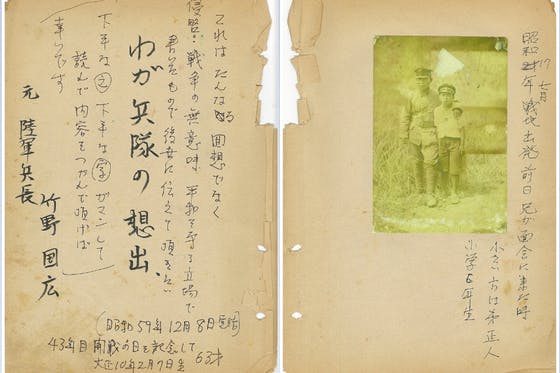 昭和17年七月戦地出発前日兄が面会に来た時
小さい方は弟正人
小学6年生
これはたんなる回想でなく
侵略戦争の無意味 平和を守る立場で
書いたもので後世に伝えて頂きたい
わが兵隊の想出、
下手な文 下手な字 ガマンして
読んで内容をつかんで頂けば
幸いです
元 陸軍兵長
竹野国広
(昭和59年12月8日
43年目 開戦の日を記念して
大正10年2月7日生 63才